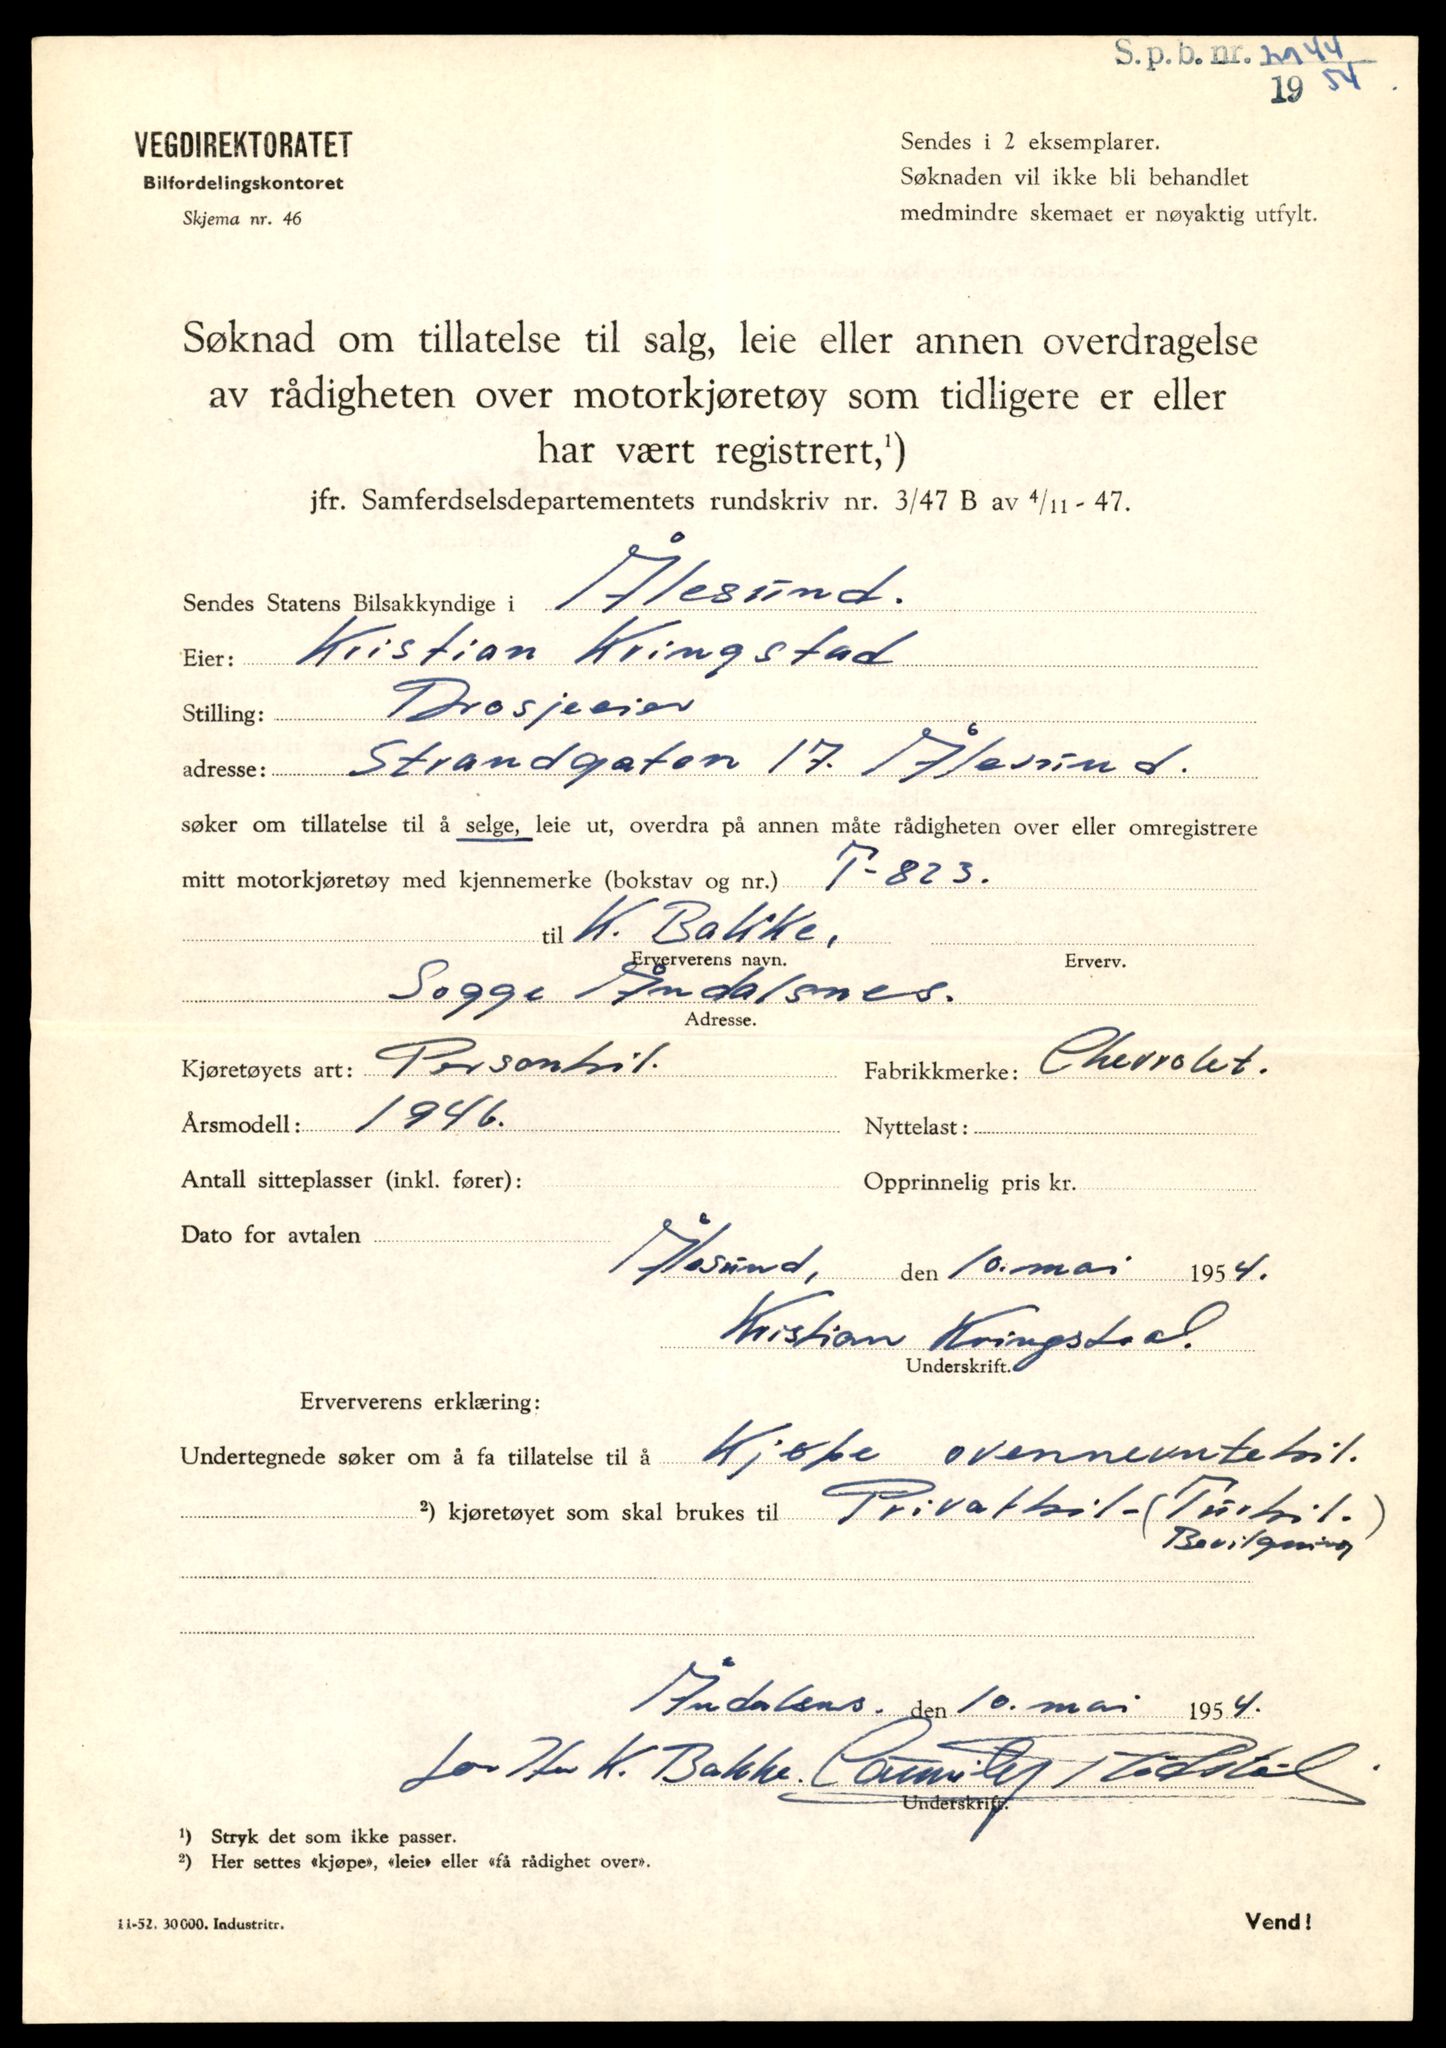 S.p.b. nr. 44
19 54
VEGDIREKTORATET
Bilfordelingskontoret
Skjema nr. 46
Sendes i 2 eksemplarer.
Søknaden vil ikke bli behandlet
medmindre skemaet er nøyaktig utfylt.
Søknad om tillatelse til salg, leie eller annen overdragelse
av rådigheten over motorkjøretøy som tidligere er eller
har vært registrert,¹)
jfr. Samferdselsdepartementets rundskriv nr. 3/47 B av 4/11 - 47.
Sendes Statens Bilsakkyndige i Ålesund.
Eier: Kristian Kringstad
Stilling: Drosjeeier
adresse: Strandgaten 17. Ålesund.
søker om tillatelse til å selge, leie ut, overdra på annen måte rådigheten over eller omregistrere
mitt motorkjøretøy med kjennemerke (bokstav og nr.) T-823.
til K. Bakke,
Erververens navn. Erverv.
Sogge Åndalsnes.
Adresse.
Kjøretøyets art: Personbil. Fabrikkmerke: Chevrolet.
Årsmodell: 1946. Nyttelast:
Antall sitteplasser (inkl. fører): Opprinnelig pris kr.
Dato for avtalen
Ålesund, den 10. mai 1954.
Kristian Kringstad.
Underskrift.
Erververens erklæring:
Undertegnede søker om å fa tillatelse til å Kjøpe ovennevntebil.
²) kjøretøyet som skal brukes til Privatbil - (Turbil.
Bevilgning)
Åndalsns. den 10. mai 1954.
for Hr K. Bakke.
Underskrift.
¹) Stryk det som ikke passer.
²) Her settes «kjøpe», «leie» eller «få rådighet over».
11-52. 30000. Industritr.
Vend!